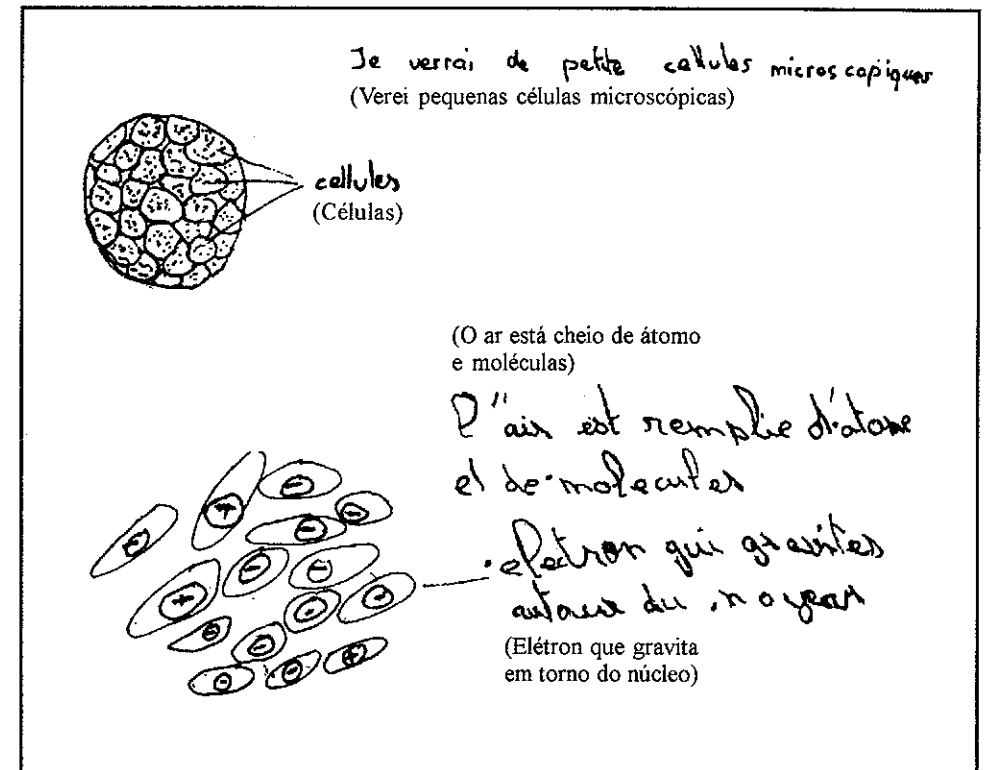 Je verrai de petite cellules microscopiques
(Verei pequenas células microscópicas)
cellules
(Células)
(O ar está cheio de átomo
e moléculas)
l'air est remplie d'atome
et de molecules
electron qui gravites
autour du noyeau
(Elétron que gravita
em torno do núcleo)